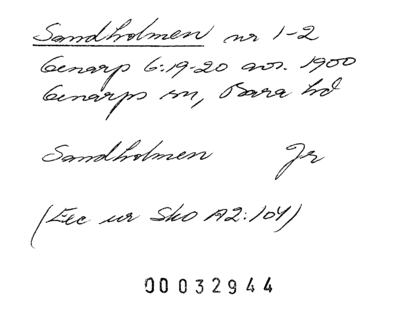 Sandholmen nr 1-2
Genarp 6:19-20 avs. 1900
Genarps sn, Bara hd
Sandholmen Jr
(Exc ur Sko A2:104)
00032944